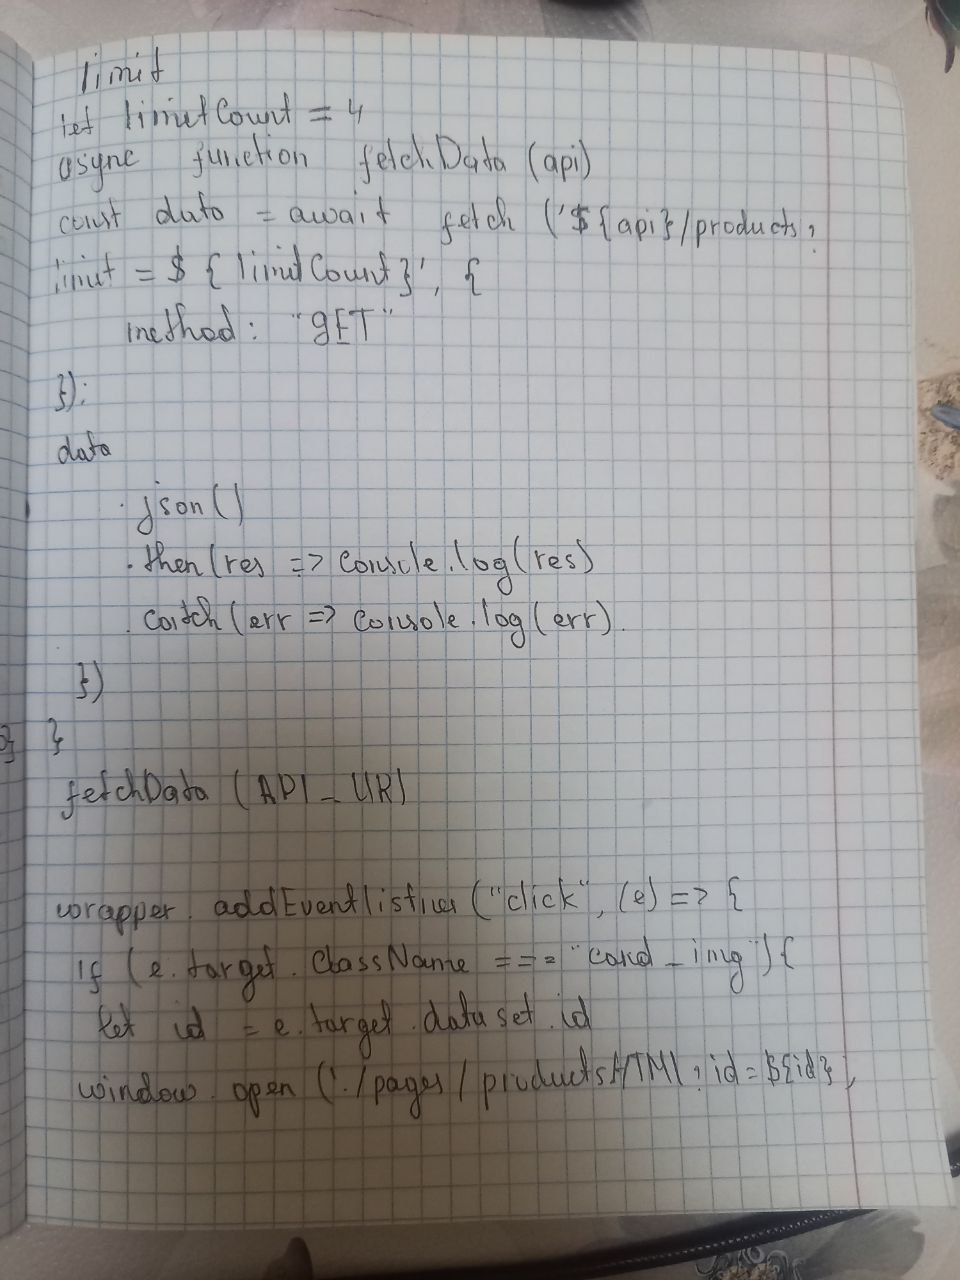 limit
let limitCount = 4
async function fetchData (api)
const data = await fetch ('${api}/products?
limit = ${limitCount}', {
method: "gET"
});
data
.json()
.then(res => console.log(res)
.catch(err => console.log(err).
})
}
fetchData (API_UR)
wrapper. addEventlistiner ("click", (e) => {
if (e.target.ClassName === "card_img"){
let id = e.target.dataset.id
window.open ('./pages/productsHTML?id=${id},